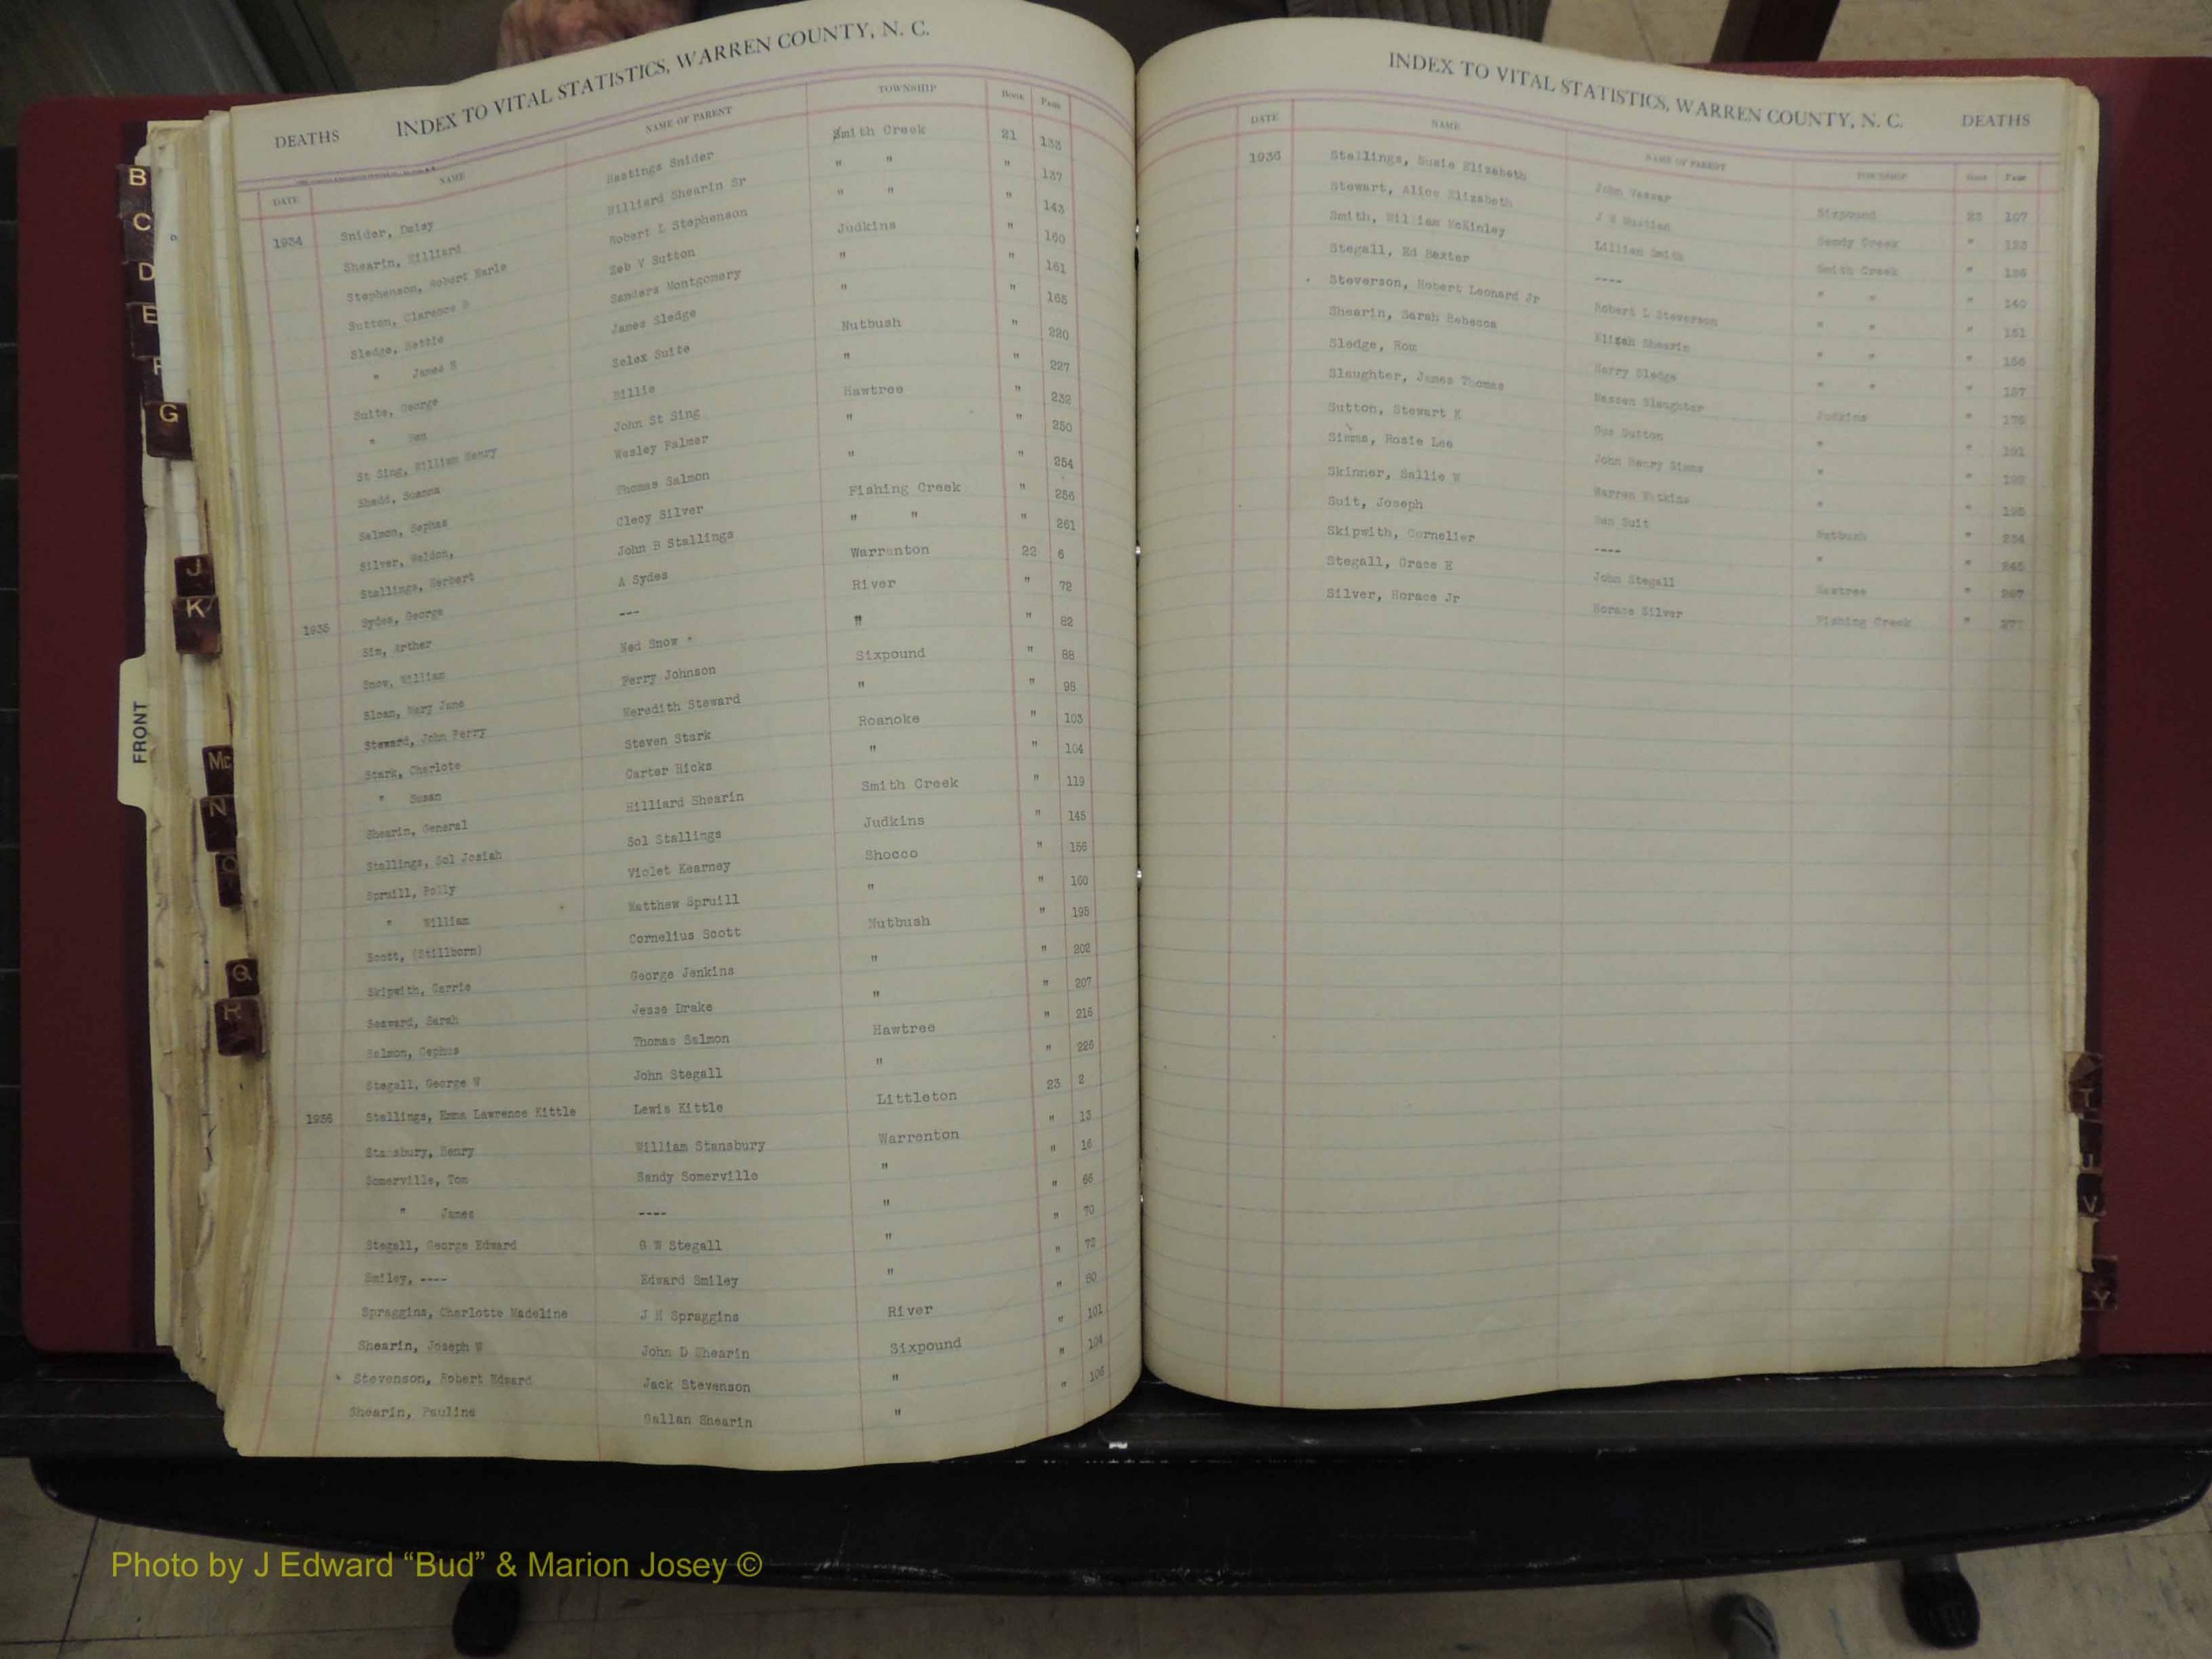 DEATHS INDEX TO VITAL STATISTICS, WARREN COUNTY, N. C.
DATE NAME NAME OF PARENT TOWNSHIP Book Page
1934 Snider, Daisy Hastings Snider Smith Creek 21 133
Shearin, Hilliard Hilliard Shearin Sr " " " 137
Stephenson, Robert Earle Robert L Stephenson " " " 143
Sutton, Clarence B Zeb V Sutton Judkins " 160
Sledge, Nettie Sanders Montgomery " " 161
" James H James Sledge " " 165
Suite, George Selex Suite Nutbush " 220
" Ben Billie " " 227
St Sing, William Henry John St Sing Hawtree " 232
Shedd, Susanna Wesley Palmer " " 250
Salmon, Sephas Thomas Salmon " " 254
Silver, Weldon, Clecy Silver Fishing Creek " 256
Stallings, Herbert John B Stallings " " " 261
1935 Sydes, George A Sydes Warrenton 22 6
Sim, Arther --- River " 72
Snow, William Ned Snow " " 82
Sloan, Mary Jane Perry Johnson Sixpound " 88
Steward, John Perry Meredith Steward " " 98
Stark, Charlote Steven Stark Roanoke " 103
" Susan Carter Hicks " " 104
Shearin, General Hilliard Shearin Smith Creek " 119
Stallings, Sol Josiah Sol Stallings Judkins " 145
Spruill, Polly Violet Kearney Shocco " 156
" William Matthew Spruill " " 160
Scott, (Stillborn) Cornelius Scott Nutbush " 195
Skipwith, Carrie George Jenkins " " 202
Seaward, Sarah Jesse Drake " " 207
Salmon, Cephus Thomas Salmon Hawtree " 216
Stegall, George W John Stegall " " 226
1936 Stallings, Emma Lawrence Kittle Lewis Kittle Littleton 23 2
Stansbury, Henry William Stansbury Warrenton " 13
Somerville, Tom Sandy Somerville " " 16
" James ---- " " 66
Stegall, George Edward G W Stegall " " 70
Smiley, ---- Edward Smiley " " 72
Spraggins, Charlotte Madeline J H Spraggins River " 80
Shearin, Joseph W John D Shearin Sixpound " 101
Stevenson, Robert Edward Jack Stevenson " " 104
Shearin, Pauline Gallan Shearin " " 106
INDEX TO VITAL STATISTICS, WARREN COUNTY, N. C. DEATHS
DATE NAME NAME OF PARENT TOWNSHIP Book Page
1936 Stallings, Susie Elizabeth John Vasser Sixpound 23 107
Stewart, Alice Elizabeth J H Mustian Sandy Creek " 123
Smith, William McKinley Lillian Smith Smith Creek " 136
Stegall, Ed Baxter ---- " " " 140
Steverson, Robert Leonard Jr Robert L Steverson " " " 151
Shearin, Sarah Rebecca Elijah Shearin " " " 156
Sledge, Rom Harry Sledge " " " 157
Slaughter, James Thomas Slaughter Judkins " 176
Sutton, Stewart K Gus Sutton " " 191
Simms, Rosie Lee John Henry Simms " "
Skinner, Sallie W Warren Watkins " " 195
Suit, Joseph Ben Suit Nutbush " 234
Skipwith, Cornelier ---- " " 245
Stegall, Grace E John Stegall Hawtree " 267
Silver, Horace Jr Horace Silver Fishing Creek "
B
C
D
E
F
G
J
K
FRONT
Mc
N
O
Q
R
T
U
V
Y
Photo by J Edward “Bud” & Marion Josey ©